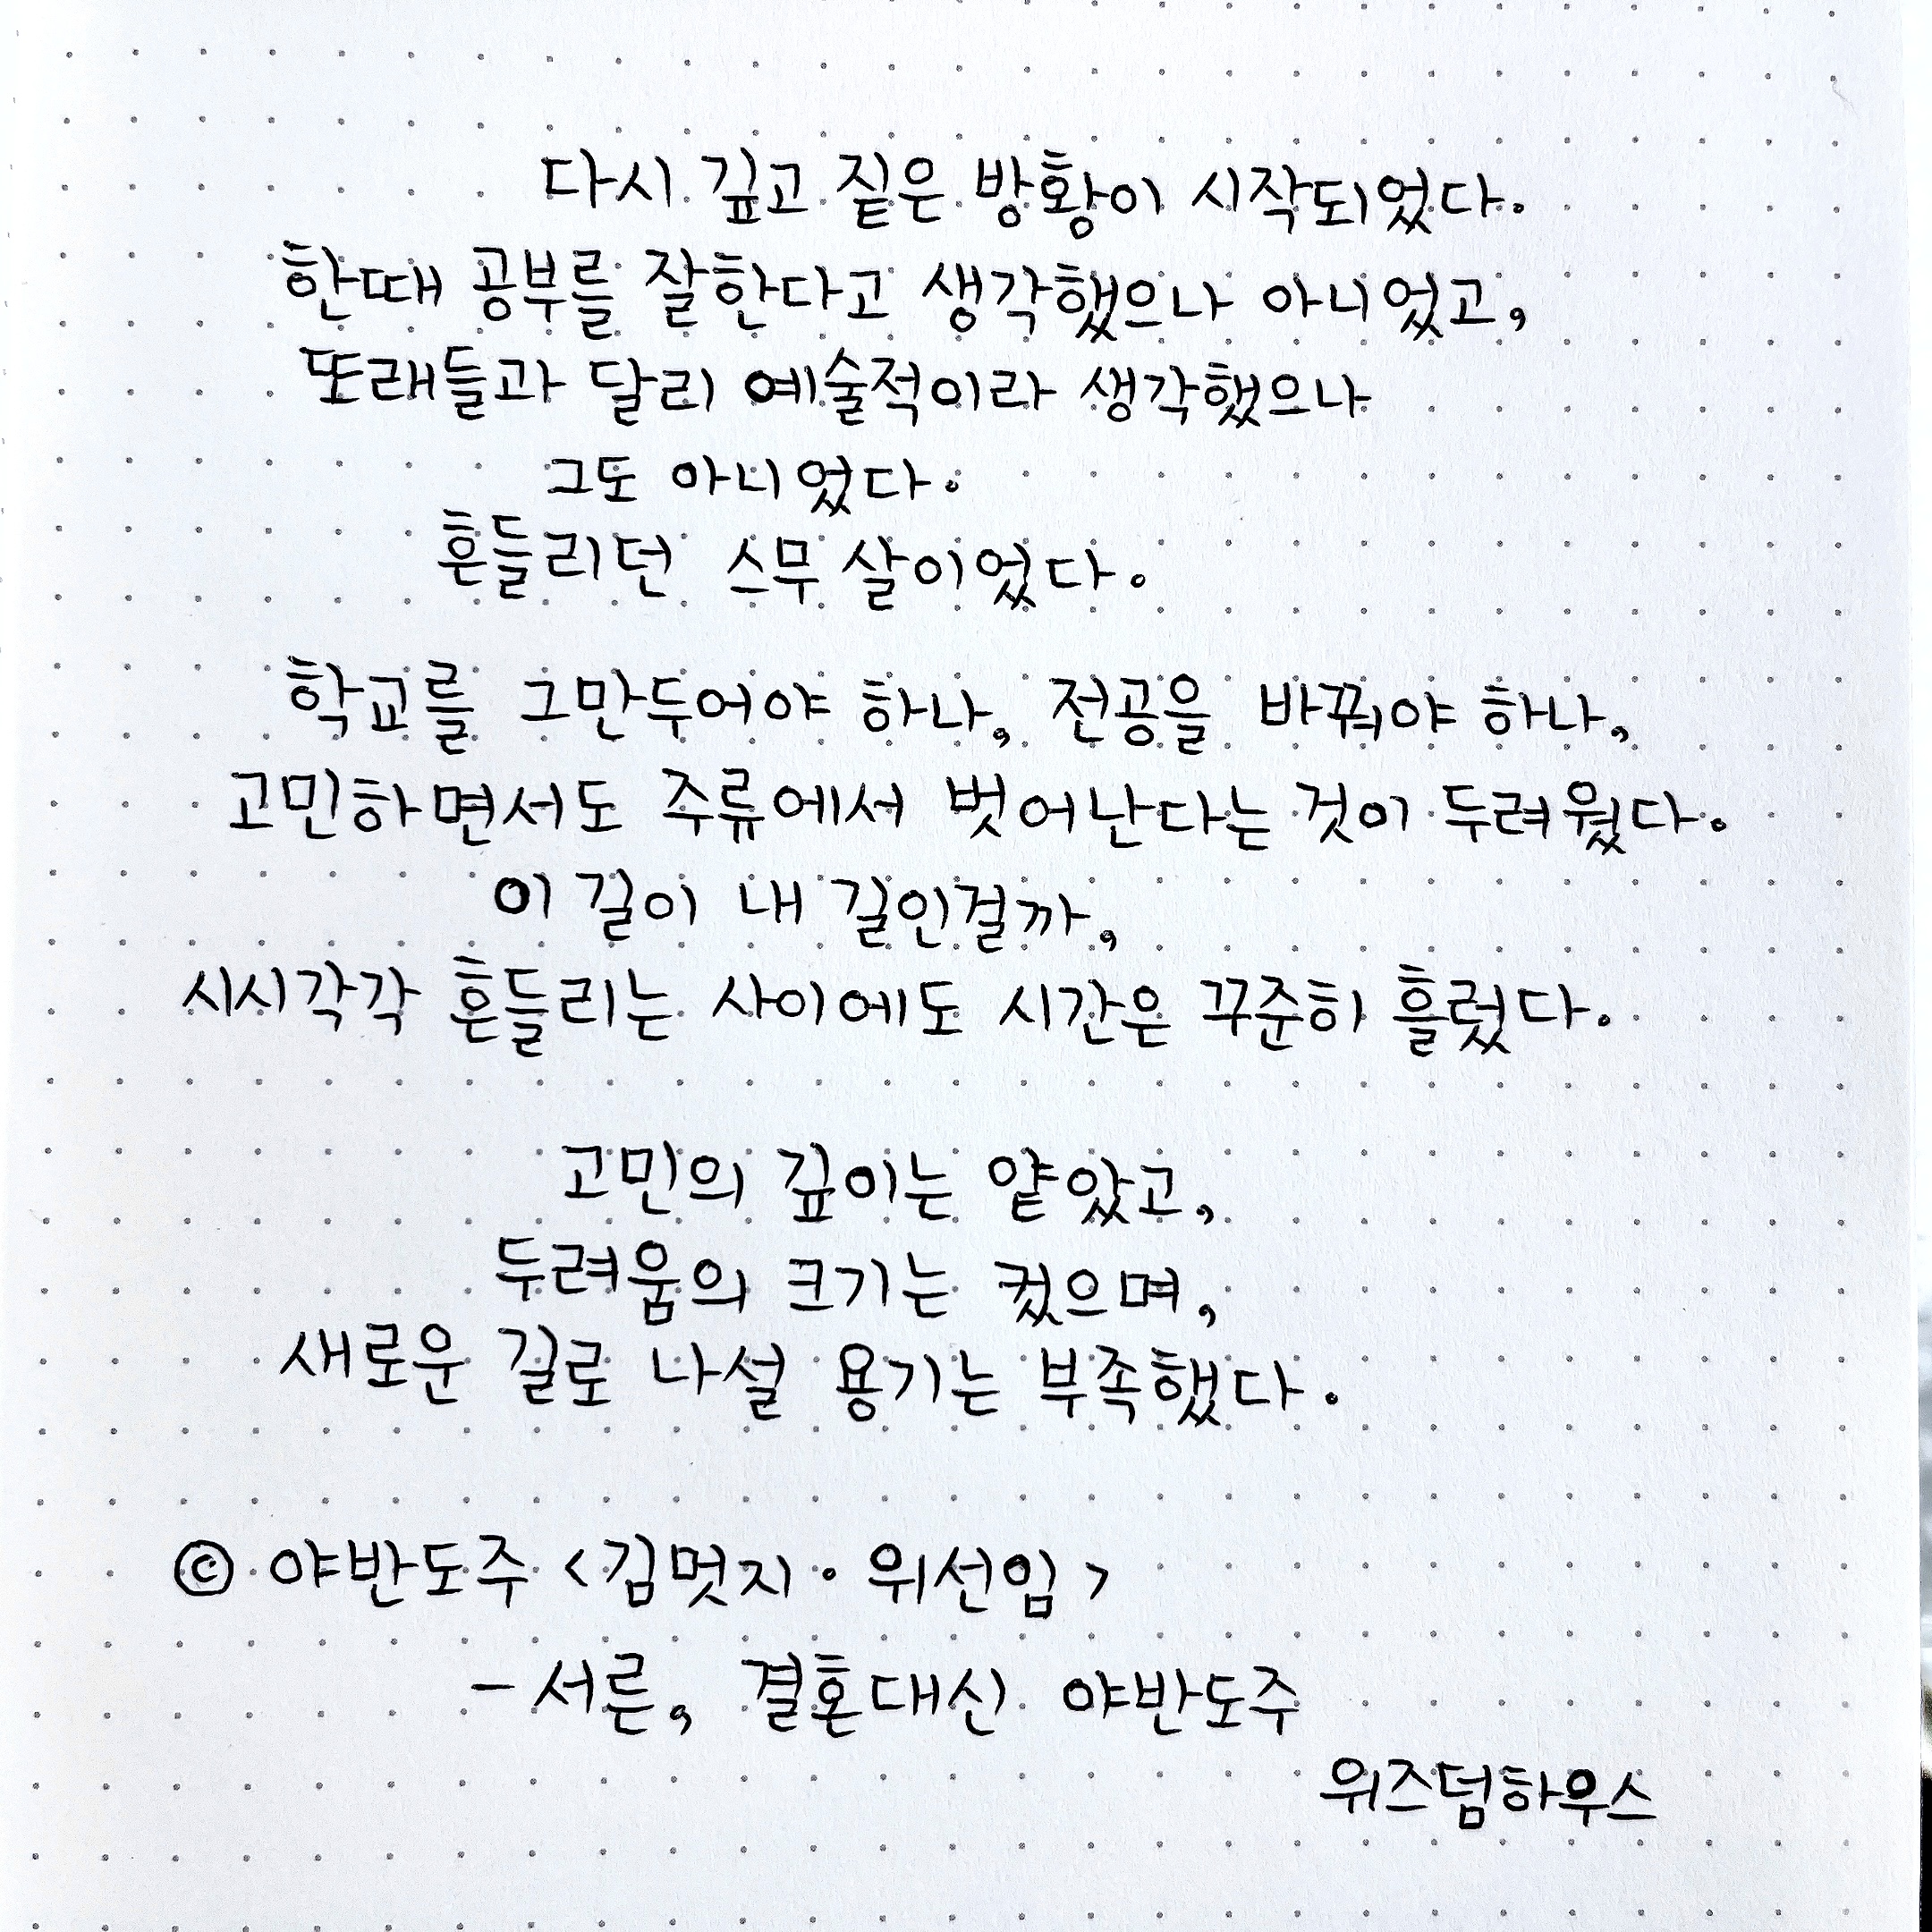 다시 깊고 짙은 방황이 시작되었다.
한때 공부를 잘한다고 생각했으나 아니었고,
또래들과 달리 예술적이라 생각했으나
그도 아니었다.
흔들리던 스무 살이었다.
학교를 그만두어야 하나, 전공을 바꿔야 하나,
고민하면서도 주류에서 벗어난다는 것이 두려웠다.
이 길이 내 길인걸까,
시시각각 흔들리는 사이에도 시간은 꾸준히 흘렀다.
고민의 깊이는 얕았고,
두려움의 크기는 컸으며,
새로운 길로 나설 용기는 부족했다.
© 야반도주 <김멋지·위선임>
- 서른, 결혼대신 야반도주
위즈덤하우스